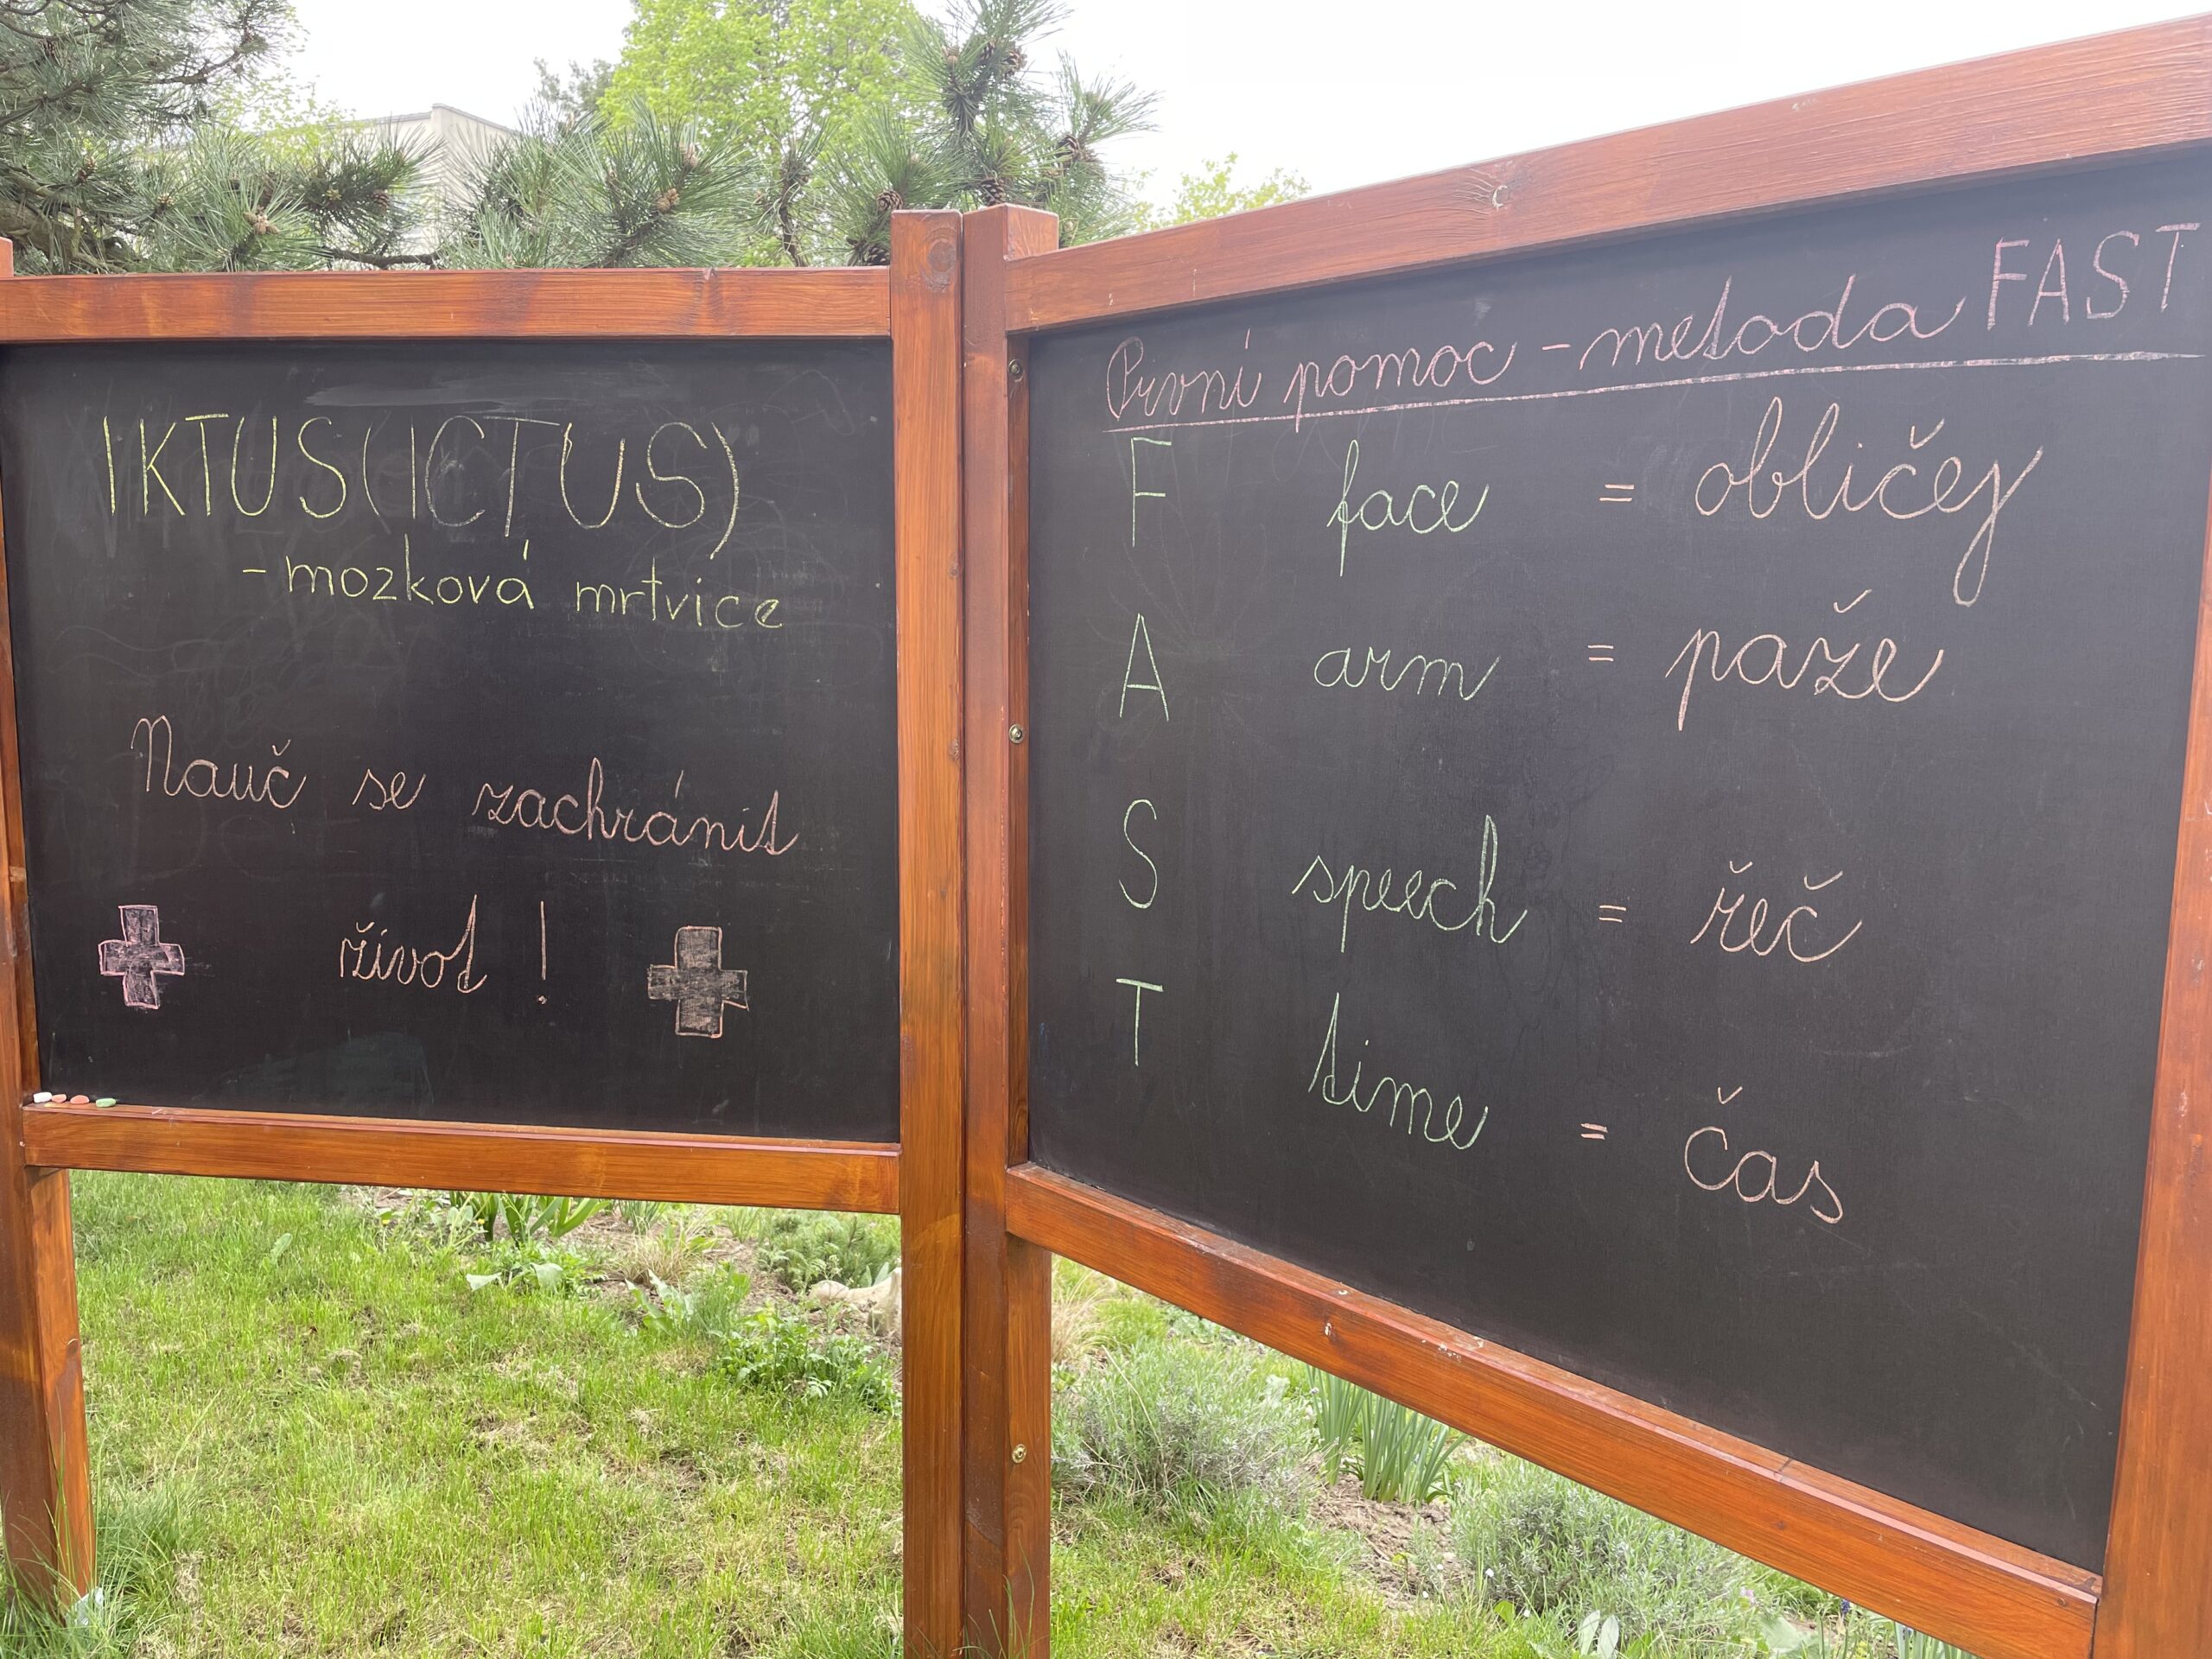 IKTUS(ICTUS)
- mozková mrtvice
Nauč se zachránit
život !
První pomoc - metoda FAST
F face = obličej
A arm = paže
S speech = řeč
T time = čas